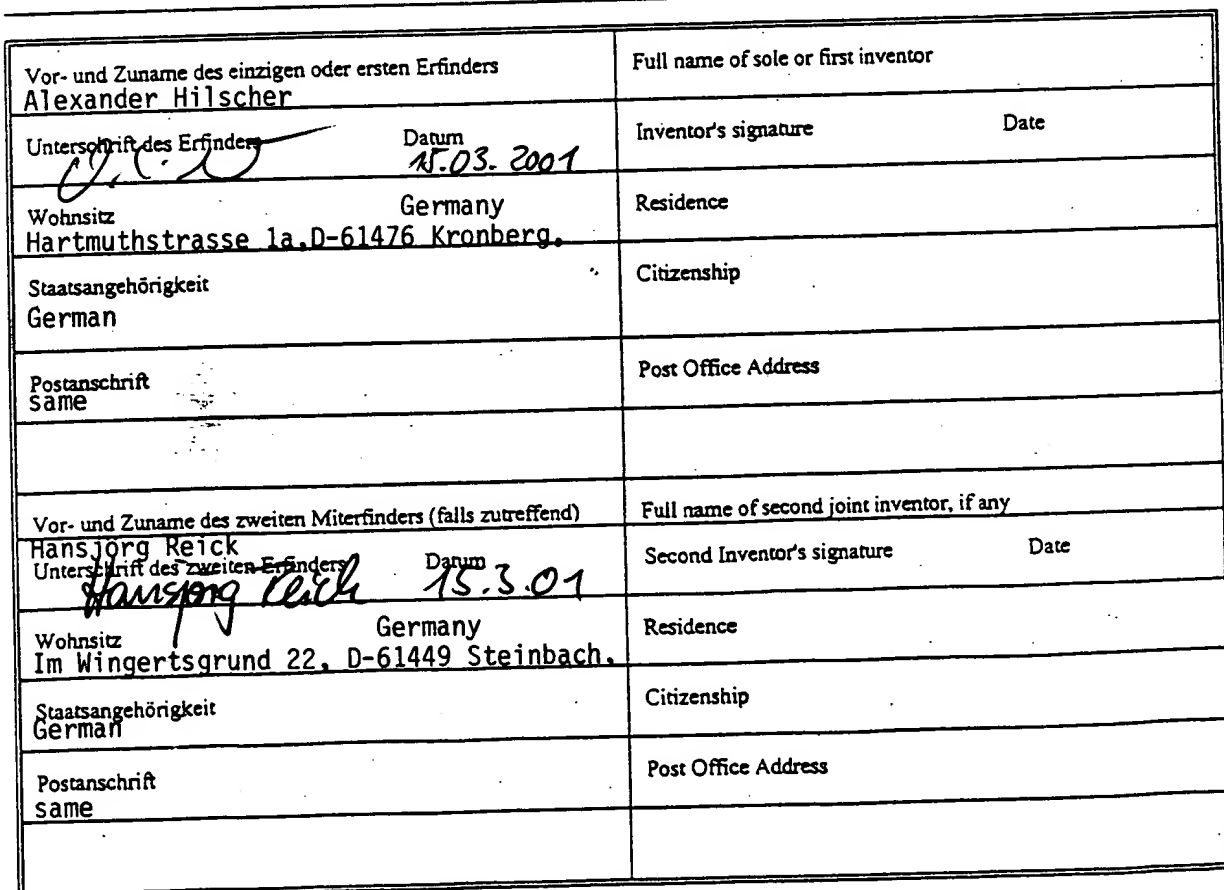 Vor- und Zuname des einzigen oder ersten Erfinders
Alexander Hilscher
Full name of sole or first inventor
Unterschrift des Erfinders Datum
15.03.2001
Inventor's signature Date
Germany
Wohnsitz
Hartmuthstrasse 1a,D-61476 Kronberg.
Residence
Staatsangehörigkeit
German
Citizenship
Postanschrift
same
Post Office Address
Vor- und Zuname des zweiten Miterfinders (falls zutreffend)
Full name of second joint inventor, if any
Hansjörg Reick
Unterschrift des zweiten Erfinders Datum
Hansjörg Reick 15.3.01
Second Inventor's signature Date
Germany
Wohnsitz
Im Wingertsgrund 22, D-61449 Steinbach.
Residence
Staatsangehörigkeit
German
Citizenship
Postanschrift
same
Post Office Address